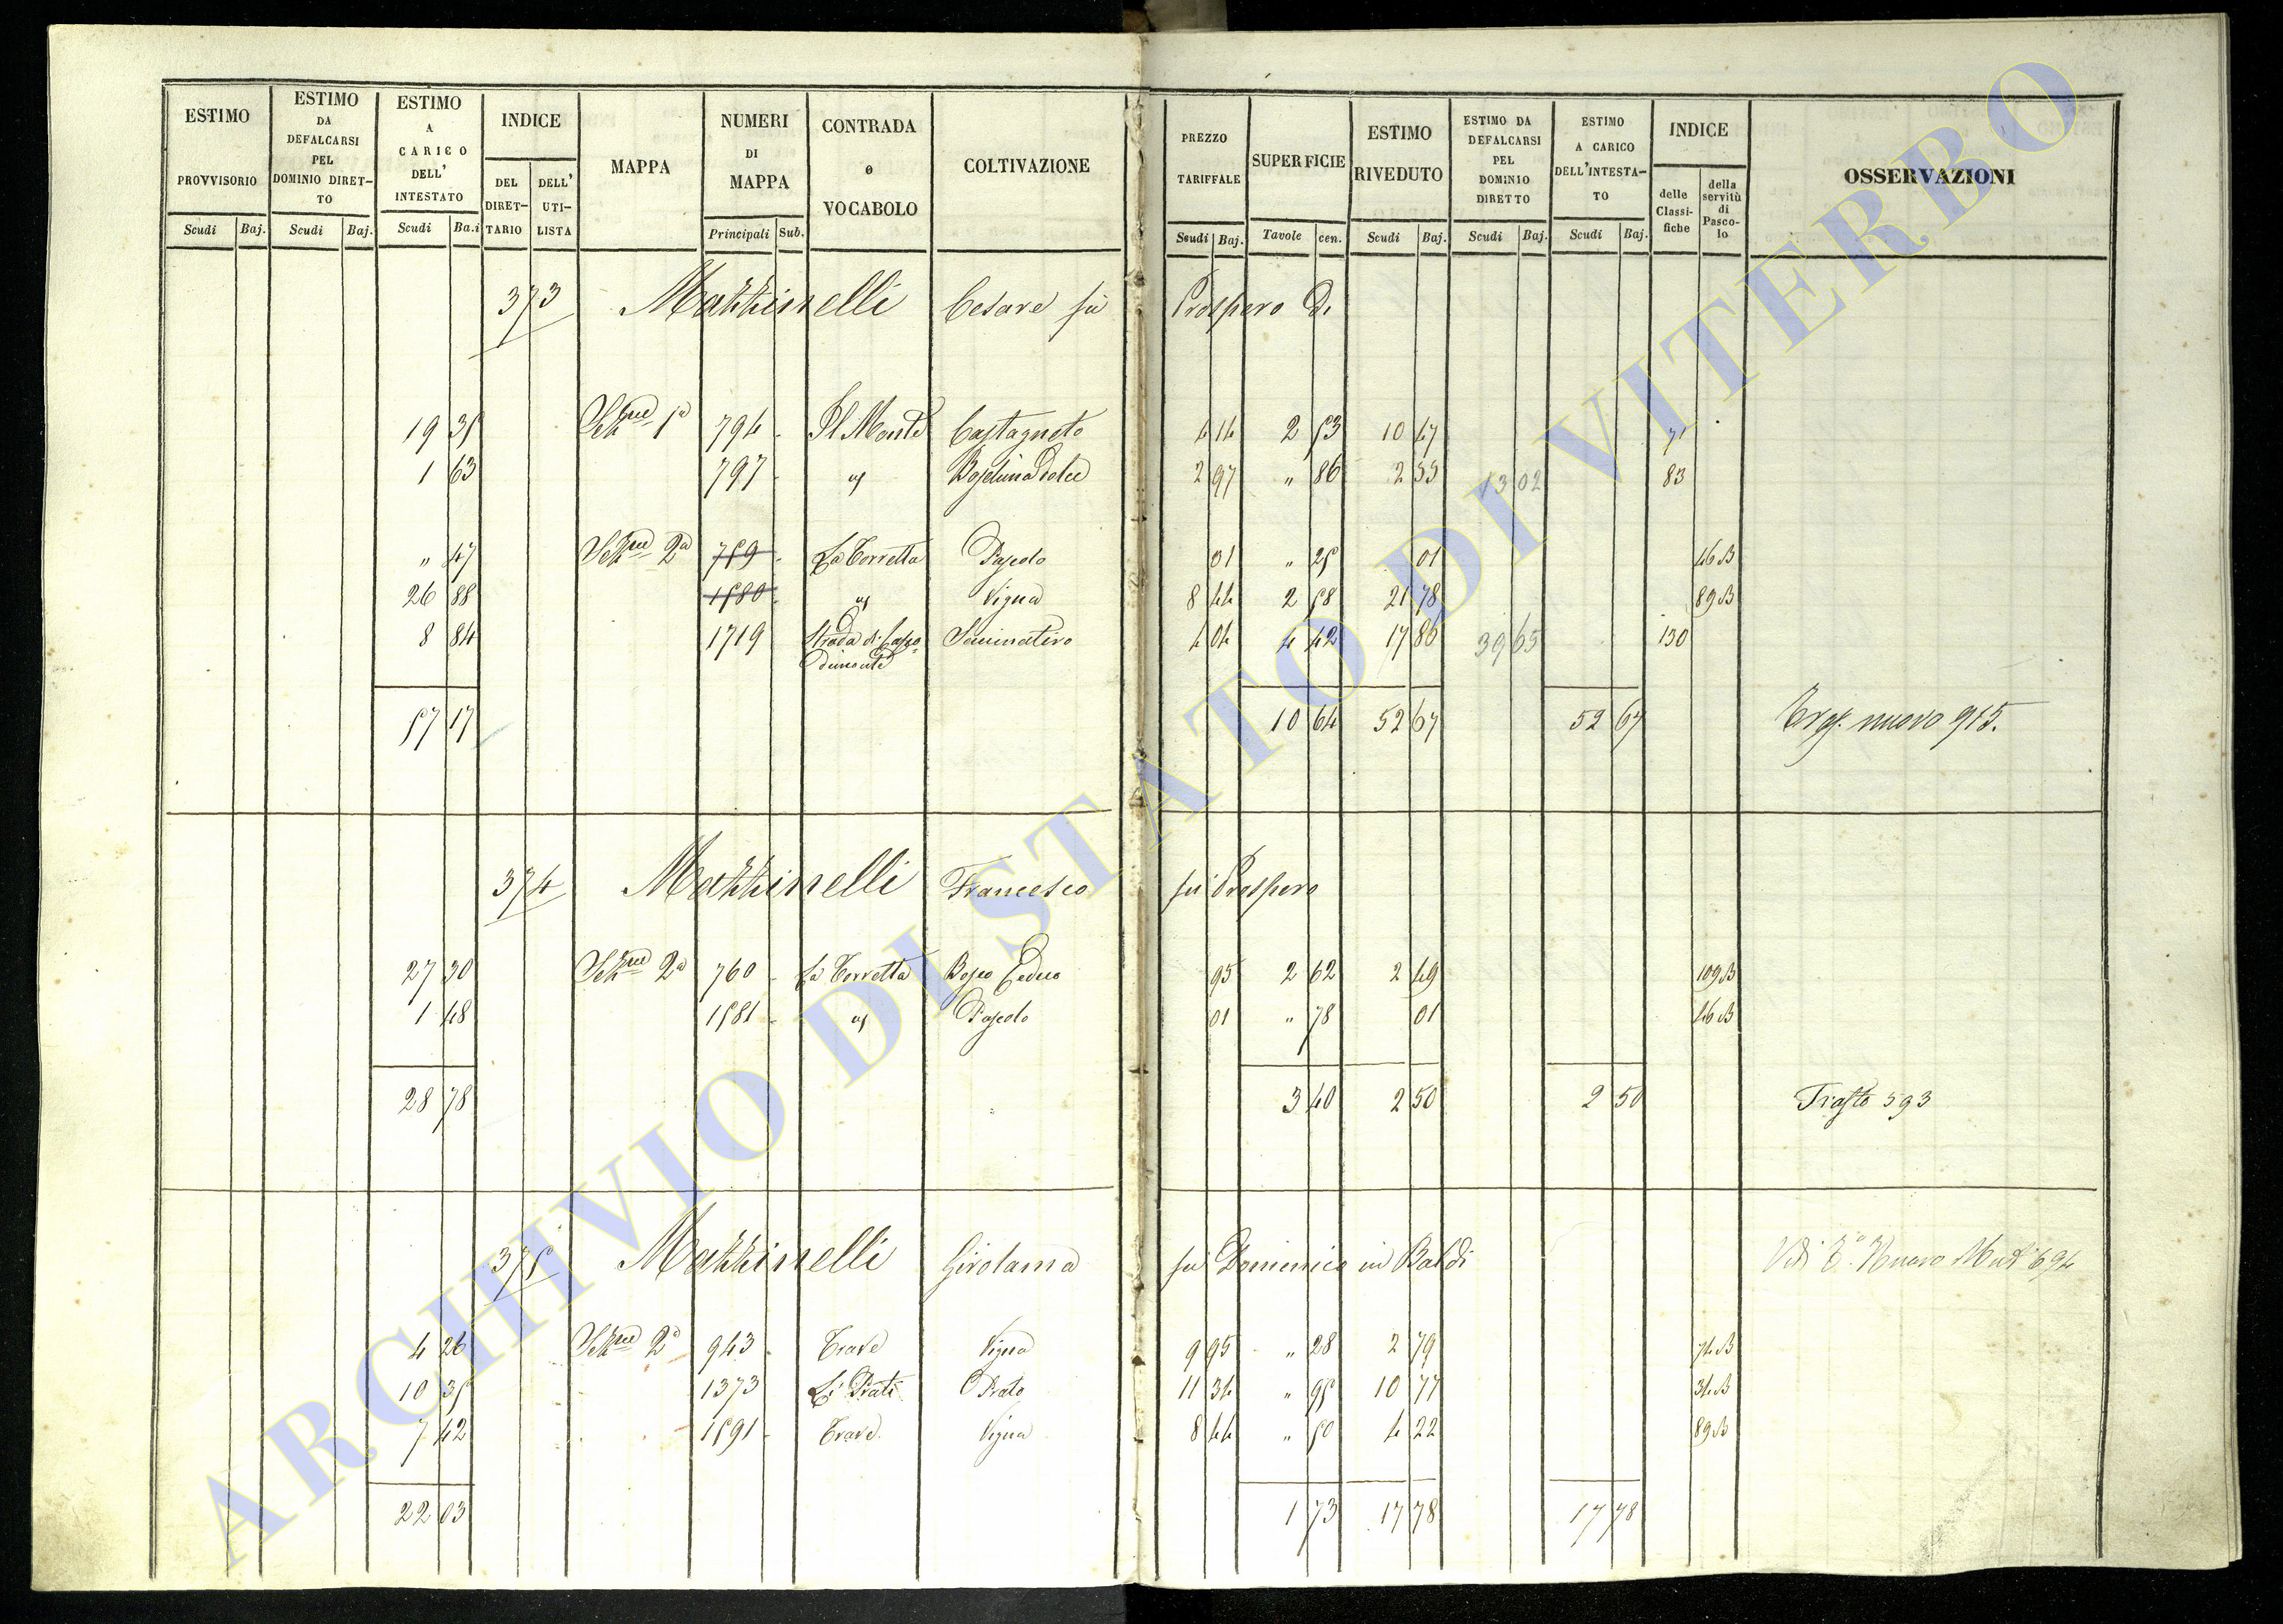 ESTIMO PROVVISORIO
ESTIMO DA DEFALCARSI PEL DOMINIO DIRET-TO
ESTIMO A CARICO DELL' INTESTATO
INDICE
DEL DIRET-TARIO
DELL' UTI-LISTA
MAPPA
NUMERI DI MAPPA
CONTRADA o VOCABOLO
COLTIVAZIONE
PREZZO TARIFFALE
SUPERFICIE
ESTIMO RIVEDUTO
ESTIMO DA DEFALCARSI PEL DOMINIO DIRETTO
ESTIMO A CARICO DELL'INTESTA-TO
INDICE
delle Classi-fiche
della servitù di Pasco-lo
OSSERVAZIONI
Scudi Baj. Scudi Baj. Scudi Ba.i Principali Sub. Scudi Baj. Tavole cen. Scudi Baj. Scudi Baj. Scudi Baj.
373 Mazzinelli Cesare fù Prospero Di
19 35 Sezne 1a 794 Il Monte Castagneto 4 14 2 53 10 47 71
1 63 797 Boschina Dolce 2 97 " 86 2 55 13 02 83
" 47 Sezne 2a 759 La Torretta Pascolo 01 " 25 01 46 B
26 88 1580 Vigna 8 44 2 58 21 78 89 B
8 84 1719 Strada di Capo= Seminativo 4 04 4 42 17 86 39 65 130
dimonte
57 17 10 64 52 67 52 67 nuovo 915.
374 Mazzinelli Francesco fù Prospero
27 30 Sezne 2a 760 La Torretta Bosco Ceduo 95 2 62 2 49 109 B
1 48 1581 Pascolo 01 " 78 01 46 B
28 78 3 40 2 50 2 50 Trasto 593
375 Mazzinelli Girolama fù Domenico in Baldi Nuovo 694
4 26 Sezne 2a 943 Trave Vigna 9 95 " 28 2 79 74 B
10 35 1373 Li Prati Prato 11 34 " 95 10 77 34 B
7 42 1591 Trave Vigna 8 44 " 50 4 22 89 B
22 03 1 73 17 78 17 78
ARCHIVIO DI STATO DI VITERBO